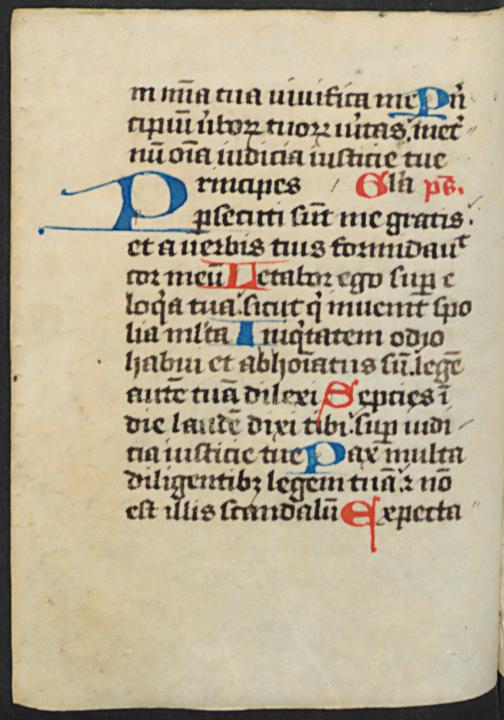 in mīa tua uiuifica me Prī
cipiū ūboꝝ tuoꝝ ūitas, inet̄
nū oīa iudicia iusticie tue
Principes Gla ps.
ꝑsecuti sūt me gratis.
et a uerbis tuis formidauͭ
cor meū Letabor ego suꝑ e
loq̄a tua. sicut q̄ inuenit spo
lia ml̄ta Iniq̄tatem odio
habui et abhoīatus sū. legē
autē tuā dilexi Septies ī
die laudē dixi tibi. suꝑ iudi
cia iusticie tue Pax multa
diligentibꝫ legem tuā. ⁊ nō
est illis scandalū Expecta